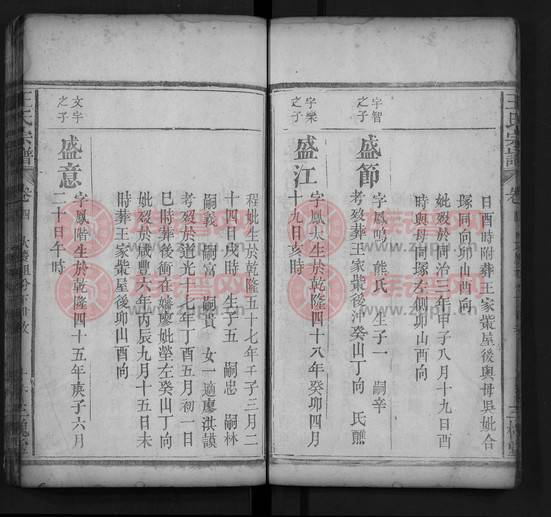 日酉時附葬王家㘽屋後與母吳妣合
塚同向卯山酉向
妣歿於同治三年甲子八月十九日酉
時與母同塚左側卯山酉向
字智
之子
盛節
字鳳鳴 熊氏 生子一 嗣辛
考歿葬王家㘽後沖癸山丁向 氏醮
字樂
之子
盛江
字鳳太生於乾隆四十八年癸卯四月
十九日亥時
程妣生於乾隆五十七年壬子三月二
十四日戌時 生子五 嗣忠 嗣林
嗣敦 嗣富 嗣貴 女一適廖洪謨
考歿於道光十七年丁酉五月初一日
巳時葬後衝在嬸廖妣塋左癸山丁向
妣歿於咸豐六年丙辰九月十五日未
時葬王家㘽屋後卯山酉向
文字
之子
盛意
字鳳階生於乾隆四十五年庚子六月
二十日午時
王氏宗譜
卷四
三槐堂
族譜网
zppp.cn